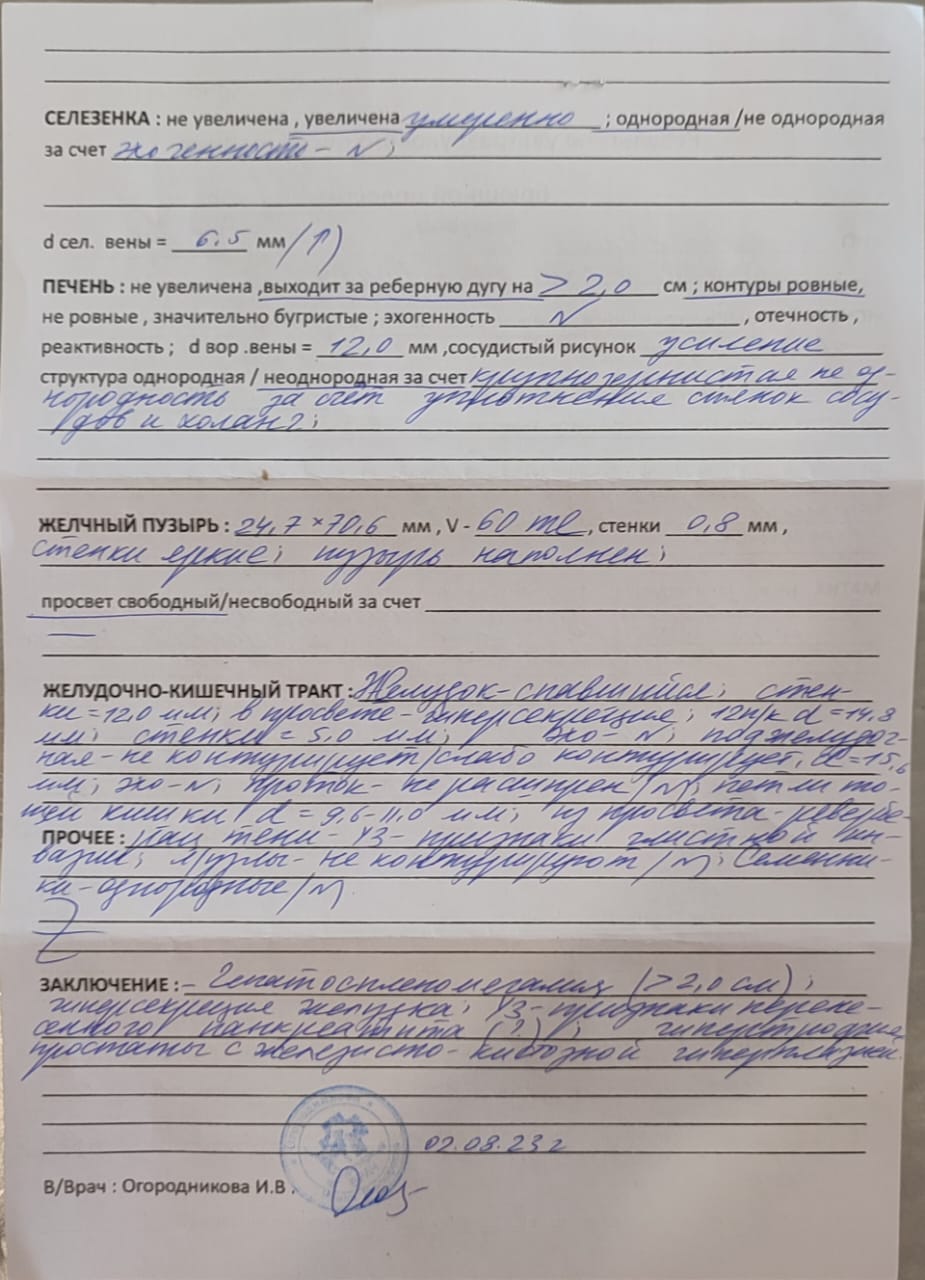 СЕЛЕЗЕНКА : не увеличена , увеличена умеренно ; однородная /не однородная
за счет эхогенность - N ;
d сел. вены = 6.5 мм /↑)
ПЕЧЕНЬ : не увеличена ,выходит за реберную дугу на > 2,0 см ; контуры ровные,
не ровные , значительно бугристые ; эхогенность N , отечность ,
реактивность ; d вор .вены = 12,0 мм ,сосудистый рисунок усиление
структура однородная / неоднородная за счет крупнозернистая не од-
нородность за счёт уплотнения стенок сосу-
дов и холанг;
ЖЕЛЧНЫЙ ПУЗЫРЬ : 24,7 × 70,6 мм , V - 60 ml , стенки 0,8 мм ,
стенки яркие; пузырь наполнен;
просвет свободный/несвободный за счет
—
ЖЕЛУДОЧНО-КИШЕЧНЫЙ ТРАКТ : Желудок - спавшийся; стен-
ки = 12,0 мм; в просвете - гиперсекреция; 12п/к d = 14,8
мм; стенки = 5,0 мм; эхо - N; поджелудоч-
ная - не контурирует/слабо контурирует, = 15,6
мм; эхо - N; проток - не расширен /N; петли то-
щей кишки d = 9,6 - 11,0 мм; из просвета - ревербе-
ПРОЧЕЕ : тени - УЗ - признаки глистной ин-
вазии; л/узлы - не контурируют /N; Семенни-
ки - однородные /N.
ЗАКЛЮЧЕНИЕ : - Гепатоспленомегалия (> 2,0 см) ;
гиперсекреция желудка; УЗ - признаки перене-
сенного панкреатита (?) ;
простаты с железисто - кистозной гиперплазией.
02.08.23 г
В/Врач : Огородникова И.В .